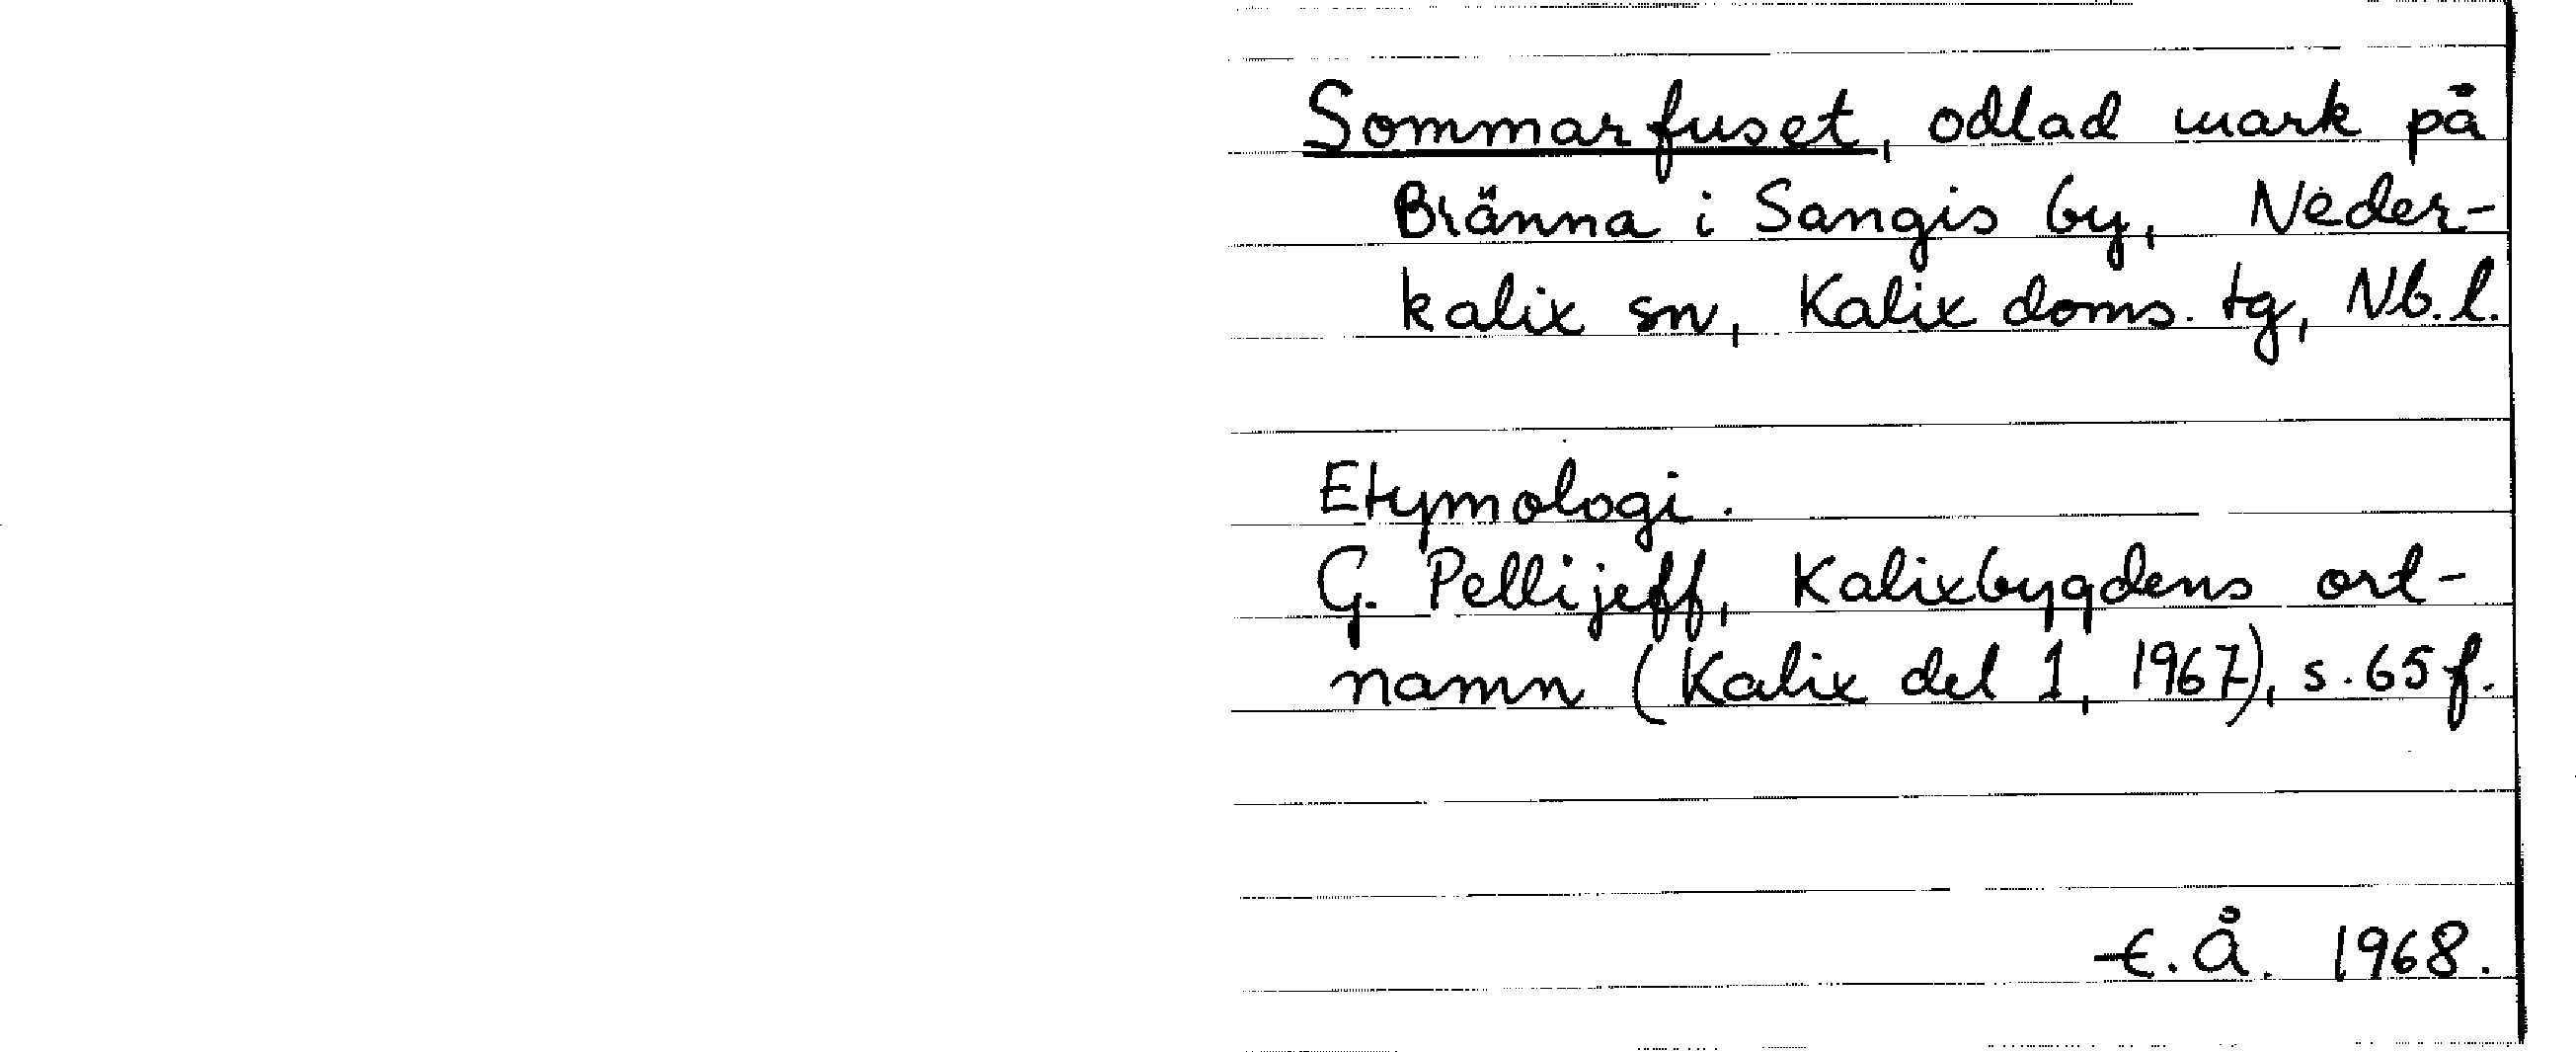 Sommarfuset, odlad mark på
Bränna i Sangis by, Neder-
kalix sn, Kalix doms. tg, Nb. l.
Etymologi.
G. Pellijeff, Kalixbygdens ort-
namn (Kalix del 1, 1967), s. 65 f.
E. Å. 1968.